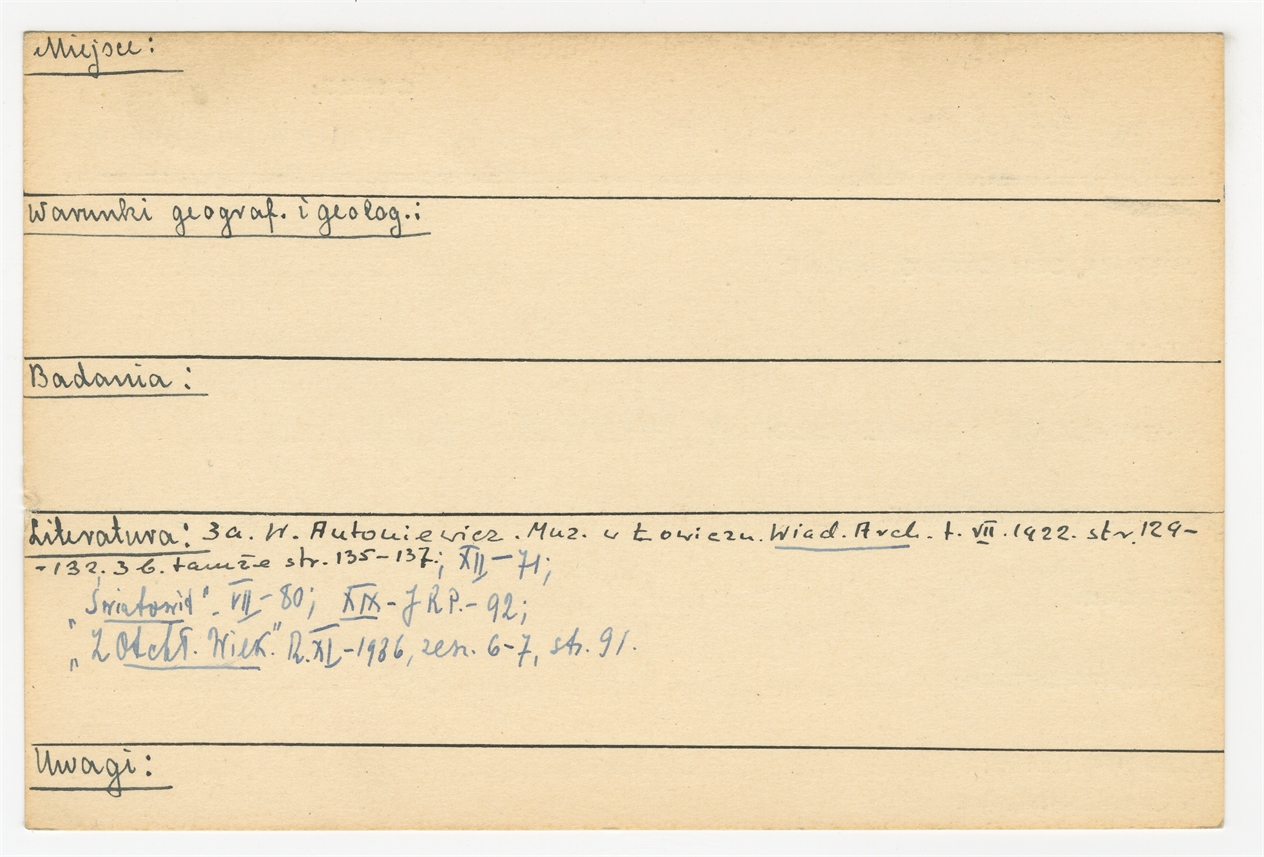 Miejsce:
Warunki geograf. i geolog.:
Badania:
Literatura: 3a. W. Antoniewicz. Muz. w Łowiczu. Wiad. Arch. t. VII. 1922. str. 129-
-132. 3b. tamże str. 135-137; XII-71;
„Światowid". VII-80; XIX-J RP.-92;
„Z Otchł. Wiek." R.XI-1936, zesz. 6-7, str. 91.
Uwagi: